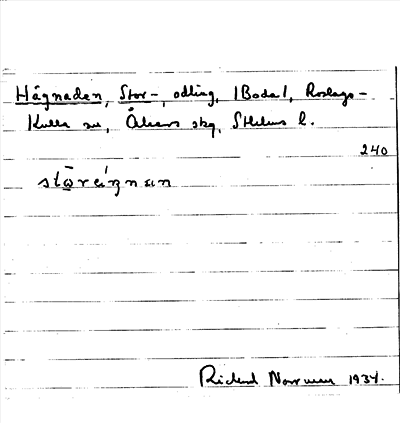 Hägnaden, Stor-, odling, (Boda), Roslags-
Kulla sn, Åkers skg, Sthlms l.
240
Richard Norrman 1934.